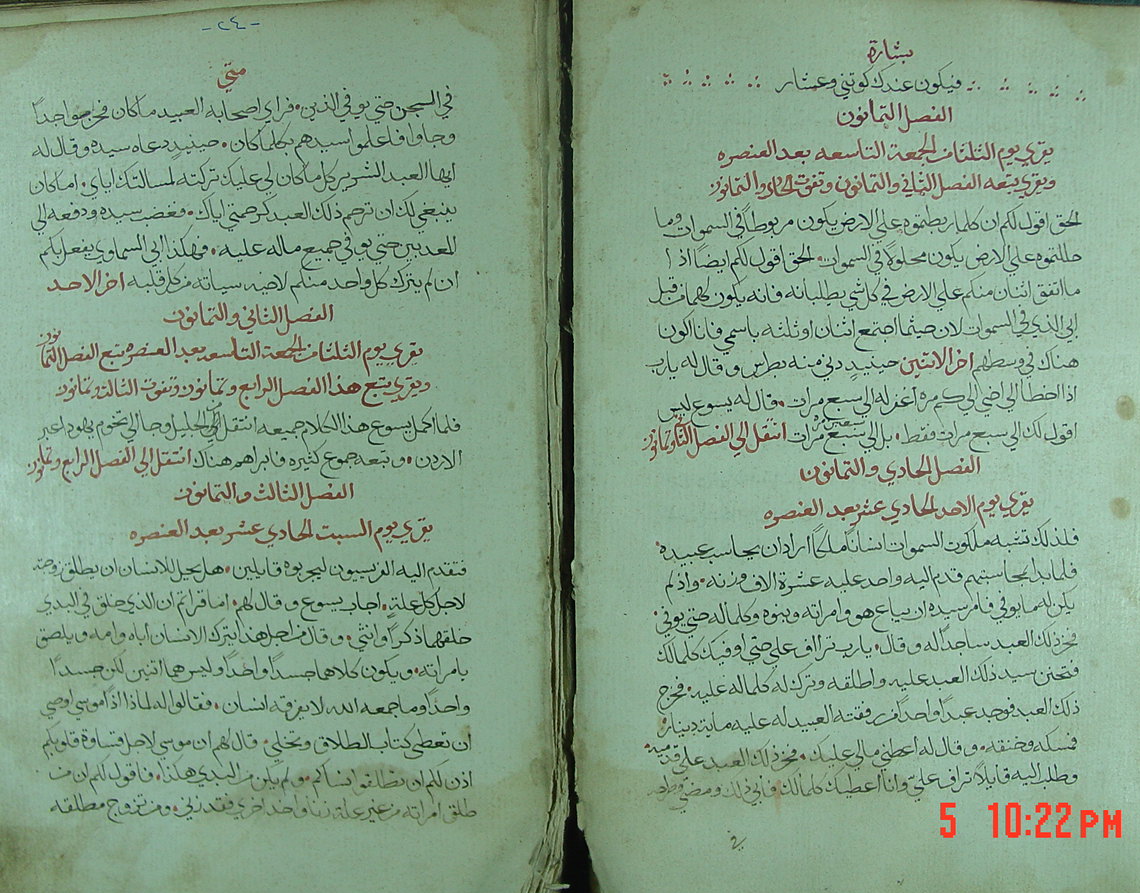 بشارة
فيكون عندك كوثني وعشار
الفصل الثمانون
يقري يوم الثلثا من الجمعة التاسعه بعد العنصره
ويقري يتبعه الفصل الثاني والثمانون وتفوت الحادي والثمانون
الحق اقول لكم ان كلما ربطتموه علي الارض يكون مربوطاً في السموات وما
حللتموه علي الارض يكون محلولاً في السموات. الحق اقول لكم ايضاً اذا
ما اتفق اثنان منكم علي الارض في كل شي يطلبانه فانه يكون لهما من قبل
ابي الذي في السموات لان حيثما اجتمع اثنان او ثلثه باسمي فانا اكون
هناك في وسطهم اخر الاثنين حينيذٍ دني منه بطرس وقال له يارب
اذا اخطا الي اخي الي كم مرة اغفر له الي سبع مرات. قال له يسوع ليس
اقول لك الي سبع مرات فقط. بل الي سبع مرات سبعين مره انتقل الي الفصل
الفصل الحادي والثمانون
يقري يوم الاحد الحادي عشر بعد العنصره
فلذلك تشبه ملكوت السموات انساناً ملكاً اراد ان يحاسب عبيده
فلما بدا بمحاسبتهم قدم اليه واحد عليه عشرة الاف وزنه. واذ لم
يكن له ما يوفي فامر سيده ان يباع هو وامراته وبنوه وكلما له حتي يوفي.
فخر ذلك العبد ساجداً له وقال. يارب تراف علي حتي اوفيك كلما لك
فتحنن سيد ذلك العبد عليه واطلقه وترك له كلما له عليه. فخرج
ذلك العبد فوجد عبداً واحداً من رفقته العبيد له عليه ماية دينار
فمسكه وخنقه. وقال له اعطني مالي عليك. فخر ذلك العبد علي قدميه
وطلب اليه قايلاً تراف علي وانا اعطيك كلما لك. فابي ذلك ومضي وطرحه
- ٢٤ -
متي
في السجن حتي يوفي الدين. فراي اصحابه العبيد ما كان فحزنوا جداً
وجاوا فاعلموا سيدهم بكلما كان. حينيذٍ دعاه سيده وقال له
ايها العبد الشرير كل ما كان لي عليك تركته لمسالتك اياي. اما كان
ينبغي لك ان ترحم ذلك العبد كرحمتي اياك. فغضب سيده ودفعه الي
المعذبين حتي يوفي جميع ماله عليه. فهكذا ابي السماوي يفعل بكم
ان لم يترك كل واحد منكم لاخيه سياته من كل قلبه اخر الاحد
الفصل الثاني والثمانون
يقري يوم الثلثا من الجمعة التاسعه بعد العنصره يتبع الفصل الثمانون
ويقري يتبع هذا الفصل الرابع وثمانون وتفوت الثالث وثمانون
فلما اكمل يسوع هذا الكلام جميعه انتقل من الجليل وجا الي تخوم يهودا عبر
الاردن. وتبعه جموع كثيره فابراهم هناك انتقل الي الفصل الرابع وثمانون
الفصل الثالث والثمانون
يقري يوم السبت الحادي عشر بعد العنصره
فتقدم اليه الفريسيون ليجربوه قايلين. هل يحل للانسان ان يطلق زوجته
لاجل كل علةٍ. اجاب يسوع وقال لهم. اما قراتم ان الذي خلق في البدي
خلقهما ذكراً وانثي. وقال من اجل هذا يترك الانسان اباه وامه ويلصق
بامراته. ويكون كلاهما جسداً واحداً وليس هما اثنين لكن جسداً
واحداً وما جمعه الله لا يفرقه انسان. فقالوا له لماذا اذاً موسي اوصي
ان تعطي كتاب الطلاق وتخلي. قال لهم ان موسي لاجل قساوة قلوبكم
اذن لكم ان تطلقوا نساكم. ولم يكن من البدي هكذا. فاقول لكم ان من
طلق امراته من غير علة زنا واخذ اخري فقد زني. ومن تزوج مطلقه
5 10:22 PM